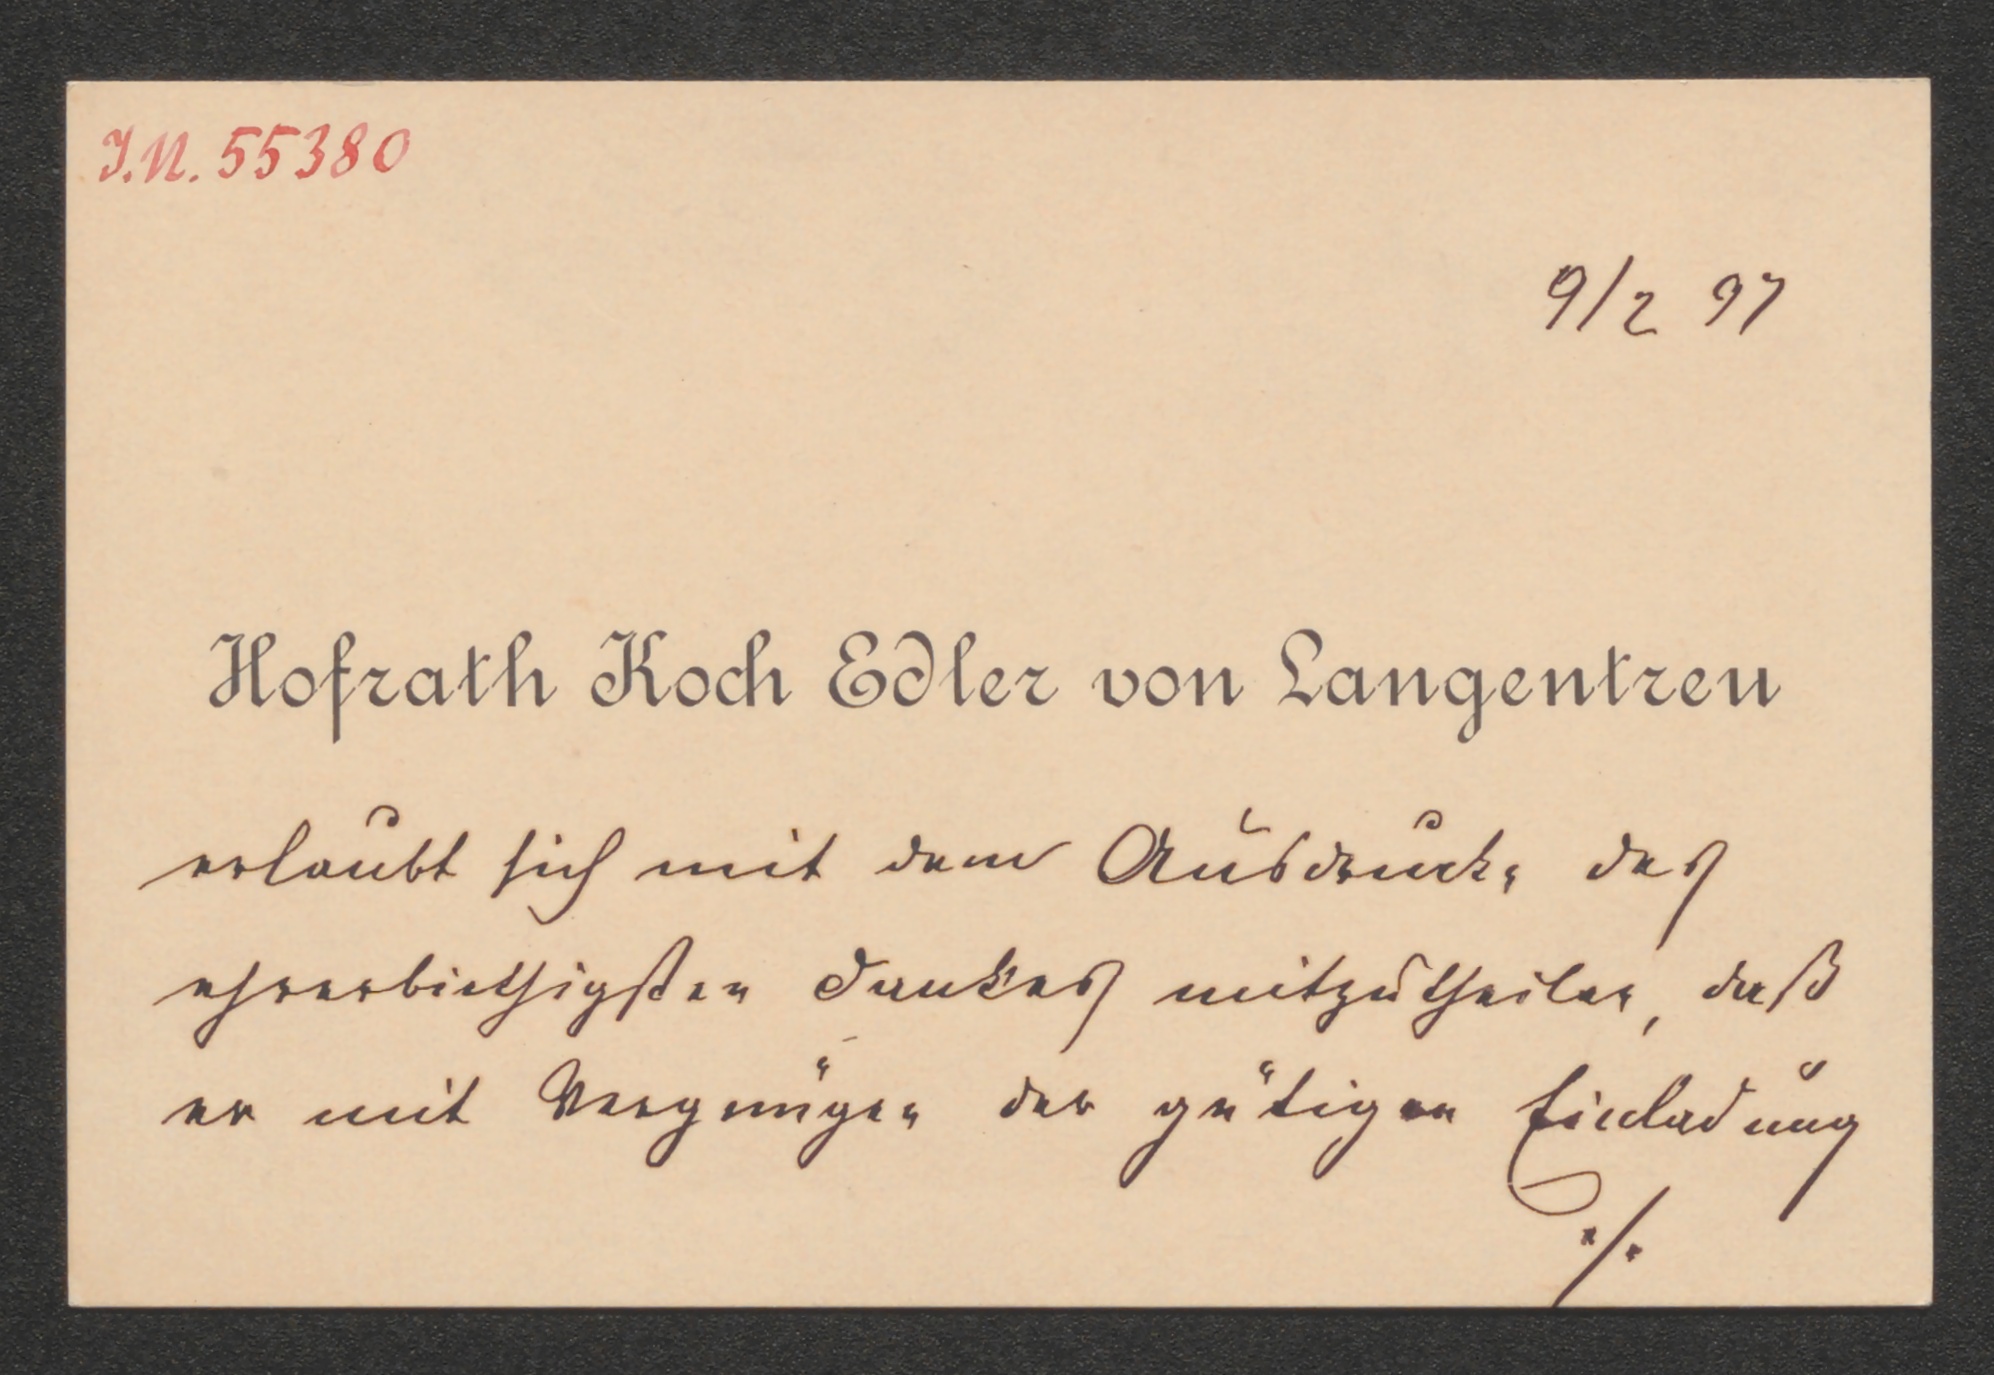 I.N. 55380
9/2 97
Hofrath Koch Edler von Langentreu
erlaubt sich mit dem Ausdrucke des
ehrerbiethigsten Dankes mitzutheilen, daß
er mit Vergnügen der gütigen Einladung
./.